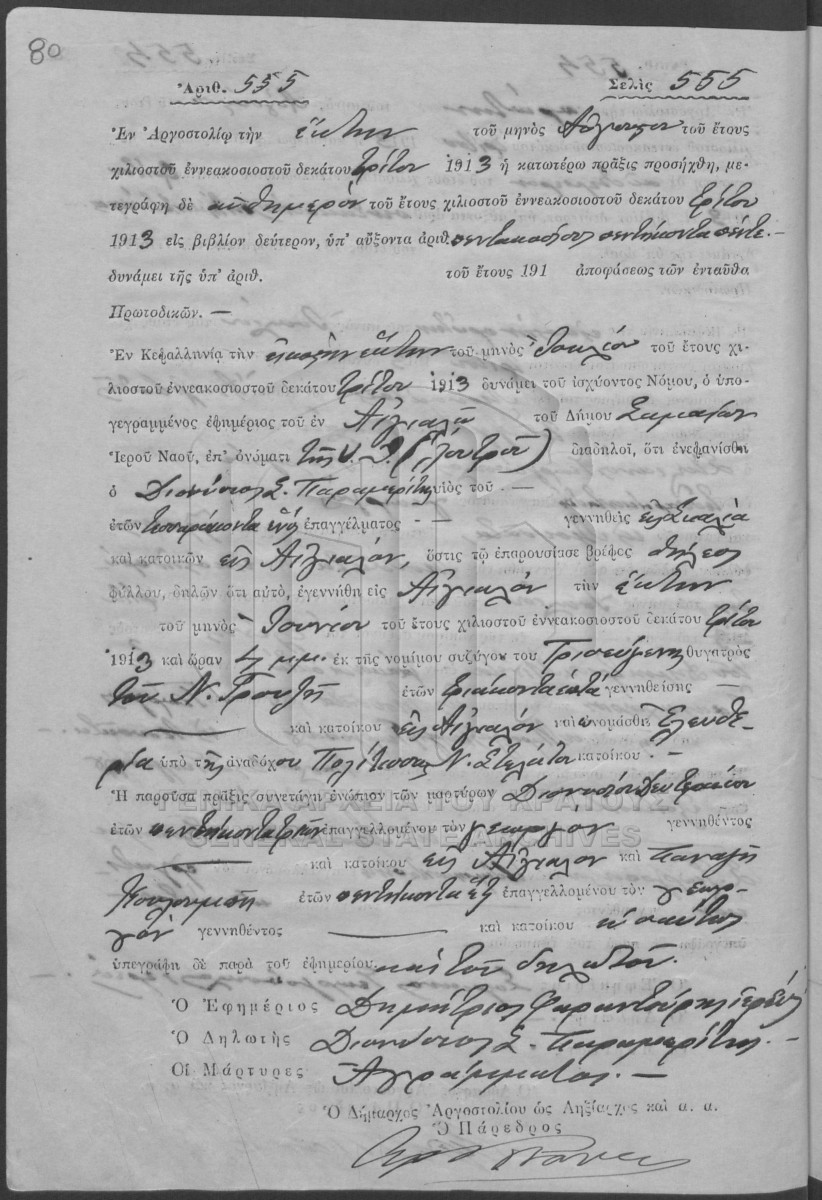 80
Ἀριθ. 555 Σελὶς 555
Ἐν Ἀργοστολίῳ τὴν ἕκτην τοῦ μηνὸς Αὐγούστου τοῦ ἔτους
χιλιοστοῦ ἐννεακοσιοστοῦ δεκάτου τρίτου 1913 ἡ κατωτέρω πρᾶξις προσήχθη, με-
τεγράφη δὲ αὐθημερὸν τοῦ ἔτους χιλιοστοῦ ἐννεακοσιοστοῦ δεκάτου τρίτου
1913 εἰς βιβλίον δεύτερον, ὑπ' αὔξοντα ἀριθ. πεντακόσια πεντήκοντα πέντε.—
δυνάμει τῆς ὑπ' ἀριθ. τοῦ ἔτους 191 ἀποφάσεως τῶν ἐνταῦθα
Πρωτοδικῶν. —
Ἐν Κεφαλληνίᾳ τὴν εἰκοστὴν ἕκτην τοῦ μηνὸς Ἰουλίου τοῦ ἔτους χι-
λιοστοῦ ἐννεακοσιοστοῦ δεκάτου τρίτου 1913 δυνάμει τοῦ ἰσχύοντος Νόμου, ὁ ὑπο-
γεγραμμένος ἐφημέριος τοῦ ἐν Αἰγιαλῷ τοῦ Δήμου Σαμαίων
Ἱεροῦ Ναοῦ, ἐπ' ὀνόματι τῆς Υ. Θ. διαδηλοῖ, ὅτι ἐνεφανίσθη
ὁ Διονύσιος Σ. Παραμερίτης υἱὸς τοῦ —
ἐτῶν τεσσαράκοντα ἑνὸς ἐπαγγέλματος — — γεννηθεὶς εἰς
καὶ κατοικῶν εἰς Αἰγιαλὸν, ὅστις τῷ ἐπαρουσίασε βρέφος θήλεος
φύλλου, δηλῶν ὅτι αὐτὸ, ἐγεννήθη εἰς Αἰγιαλὸν τὴν ἕκτην
τοῦ μηνὸς Ἰουνίου τοῦ ἔτους χιλιοστοῦ ἐννεακοσιοστοῦ δεκάτου τρίτου
1913 καὶ ὥραν μ.μ. ἐκ τῆς νομίμου συζύγου του Τρισεύγενης θυγατρὸς
τοῦ Ν. ἐτῶν τριάκοντα ἑπτὰ γεννηθείσης —
— καὶ κατοίκου εἰς Αἰγιαλὸν καὶ ὠνομάσθη Ἐλευθε-
ρία ὑπὸ τῆς ἀναδόχου Πολίτισσας Ν. κατοίκου —
Ἡ παροῦσα πρᾶξις συνετάγη ἐνώπιον τῶν μαρτύρων Διονυσίου
ἐτῶν πεντήκοντα τριῶν ἐπαγγελλομένου τὸν γεωργὸν γεννηθέντος
— καὶ κατοίκου εἰς Αἰγιαλὸν καὶ Παναγῆ
ἐτῶν πεντήκοντα ἕξ ἐπαγγελλομένου τὸν γεωρ-
γὸν γεννηθέντος — καὶ κατοίκου
ὑπεγράφη δὲ παρὰ τοῦ ἐφημερίου καὶ τοῦ δηλωτοῦ.
Ὁ Ἐφημέριος Δημήτριος Φαραντούρης ἱερεὺς
Ὁ Δηλωτὴς Διονύσιος Σ. Παραμερίτης.—
Οἱ Μάρτυρες Ἀγράμματοι.—
Ὁ Δήμαρχος Ἀργοστολίου ὡς Ληξίαρχος καὶ α. α.
Ὁ Πάρεδρος
ΓΕΝΙΚΑ ΑΡΧΕΙΑ ΤΟΥ ΚΡΑΤΟΥΣ
GENERAL STATE ARCHIVES